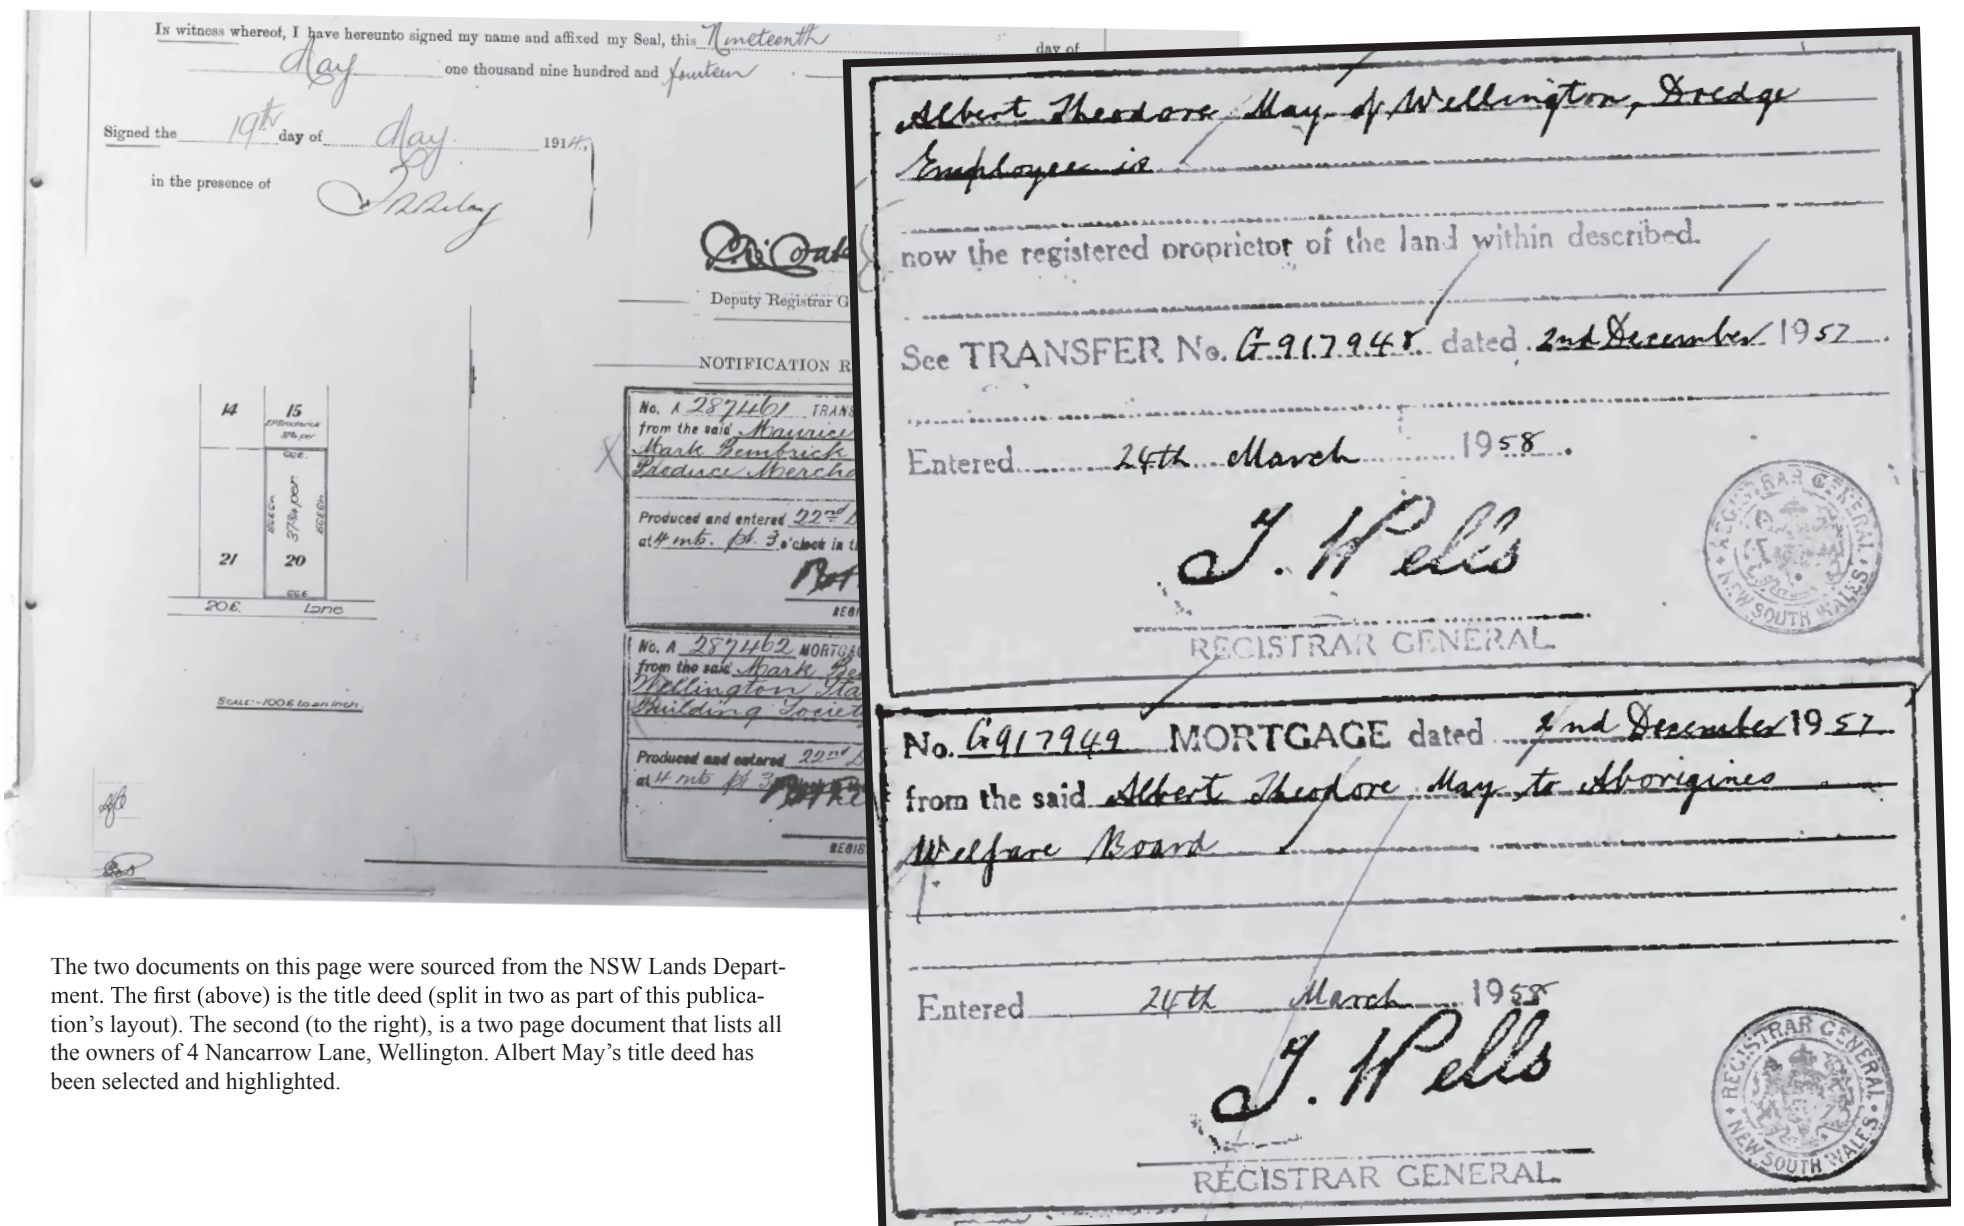 In witness whereof, I have hereunto signed my name and affixed my Seal, this Nineteenth day of
May one thousand nine hundred and fourteen
Signed the 19th day of May 1914,
in the presence of
Deputy Registrar G
NOTIFICATION R
No. A 287461 TRANS
from the said Maurice
Mark Bembrick
Produce Mercha
Produced and entered 22nd D
at 4 mts. pt. 3 o'clock in t
REGI
No. A 287462 MORTGA
from the said Mark Be
Wellington Sta
Building Societ
Produced and entered 22nd D
at 4 mts pt 3
REGIS
14
15
21
20
20 ft.
Lane
SCALE - 100 ft to an inch.
Albert Theodore May of Wellington, Dredge
Employee is
now the registered proprietor of the land within described.
See TRANSFER No. G917948 dated 2nd December 1957
Entered 24th March 1958.
J. Wells
REGISTRAR GENERAL
REGISTRAR GENERAL
NEW SOUTH WALES
No. G917949 MORTGAGE dated 2nd December 1957
from the said Albert Theodore May to Aborigines
Welfare Board
Entered 24th March 1958
J. Wells
REGISTRAR GENERAL.
REGISTRAR GENERAL
NEW SOUTH WALES
The two documents on this page were sourced from the NSW Lands Depart-
ment. The first (above) is the title deed (split in two as part of this publica-
tion’s layout). The second (to the right), is a two page document that lists all
the owners of 4 Nancarrow Lane, Wellington. Albert May’s title deed has
been selected and highlighted.